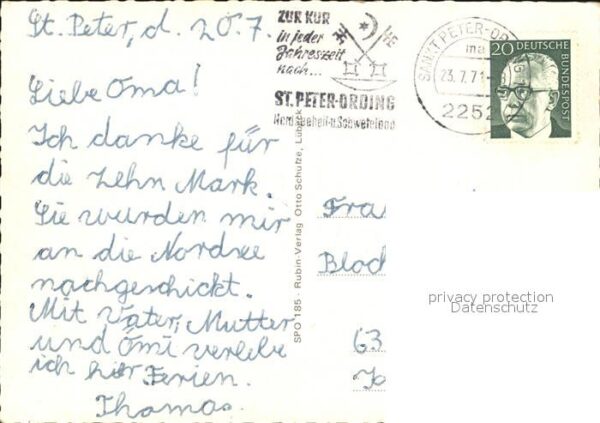 St. Peter, d. 20. 7.
Liebe Oma!
Ich danke für
die zehn Mark.
Sie wurden mir
an die Nordsee
nachgeschickt.
Mit Vater, Mutter
und Omi verlebe
ich hier Ferien.
Thomas.
ZUR KUR
in jeder
Jahreszeit
nach...
ST. PETER-ORDING
Nordseeheil-u.Schwefelbad
SANKT PETER-OR
23.7.71
2252
20 DEUTSCHE
BUNDESPOST
SPO 185 - Rubin-Verlag Otto Schutze, Lübeck
Fra
Bloc
63
privacy protection
Datenschutz